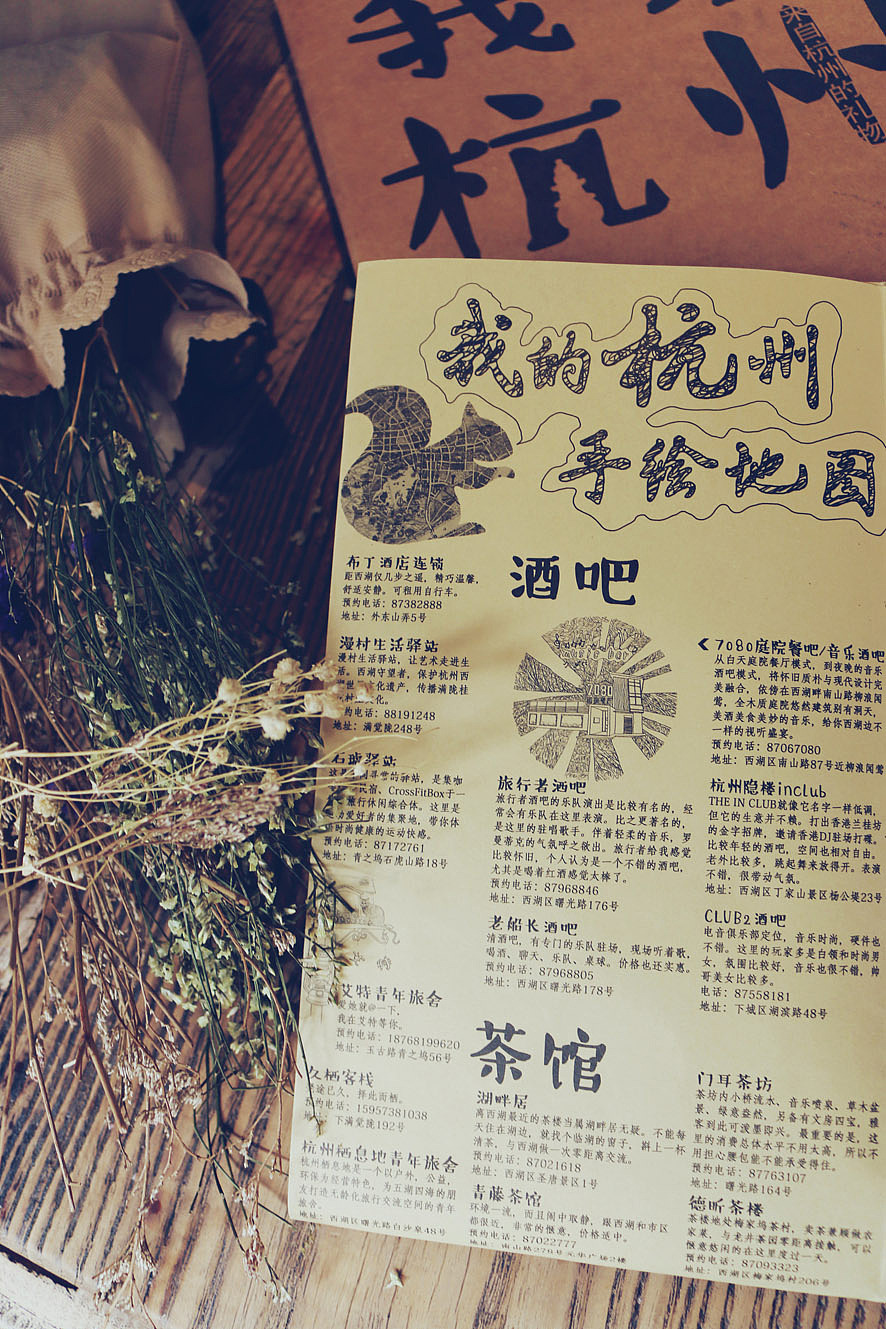 我
杭州
来自杭州的礼物
我的杭州
手绘地图
布丁酒店连锁
距西湖仅几步之遥，精巧温馨，
舒适安静。可租用自行车。
预约电话：87382888
地址：外东山弄5号
漫村生活驿站
漫村生活驿站，让艺术走进生
活。西湖守望者，保护杭州西
化遗产，传播满陇桂
文化。
约电话：88191248
地址：满觉陇248号
驿站
驿站，是集咖
民宿、CrossFitBox于一
旅行休闲综合体。这里是
动爱好者的集聚地，带你体
时尚健康的运动快感。
约电话：87172761
地址：青之坞石虎山路18号
艾特青年旅舍
爱她就@一下，
我在艾特等你。
预约电话：18768199620
地址：玉古路青之坞56号
久栖客栈
旅途已久，择此而栖。
约电话：15957381038
下满觉陇192号
杭州栖息地青年旅舍
杭州栖息地是一个以户外，公益，
环保为经营特色，为五湖四海的朋
友打造无龄化旅行交流空间的青年
旅舍。
地址：西湖区曙光路白沙泉48号
酒吧
music bar
7080
旅行者酒吧
旅行者酒吧的乐队演出是比较有名的，经
常会有乐队在这里表演。比之更著名的，
是这里的驻唱歌手。伴着轻柔的音乐，罗
曼蒂克的气氛呼之欲出。旅行者给我感觉
比较怀旧，个人认为是一个不错的酒吧，
尤其是喝着红酒感觉太棒了。
预约电话：87968846
地址：西湖区曙光路176号
老船长酒吧
清酒吧，有专门的乐队驻场，现场听着歌，
喝酒、聊天、乐队、桌球。价格也还实惠。
预约电话：87968805
地址：西湖区曙光路178号
7080庭院餐吧/音乐酒吧
从白天庭院餐厅模式，到夜晚的音乐
酒吧模式，将怀旧质朴与现代设计完
美融合，依傍在西湖畔南山路柳浪闻
莺，全木质庭院悠然建筑别有洞天，
美酒美食美妙的音乐，给你西湖边不
一样的视听盛宴。
预约电话：87067080
地址：西湖区南山路87号近柳浪闻莺
杭州隐楼inclub
THE IN CLUB就像它名字一样低调，
但它的生意并不赖。打出香港兰桂坊
的金字招牌，邀请香港DJ驻场打碟。
比较年轻的酒吧，空间也相对自由。
老外比较多，跳起舞来放得开。表演
不错，很带动气氛。
地址：西湖区丁家山景区杨公堤23号
CLUB2酒吧
电音俱乐部定位，音乐时尚，硬件也
不错。这里的玩家多是白领和时尚男
女，氛围比较好，音乐也很不错，帅
哥美女比较多。
电话：87558181
地址：下城区湖滨路48号
茶馆
湖畔居
离西湖最近的茶楼当属湖畔居无疑。不能每
天住在湖边，就找个临湖的窗子，斟上一杯
清茶，与西湖做一次零距离交流。
预约电话：87021618
地址：西湖区圣唐景区1号
青藤茶馆
环境一流，而且闹中取静，跟西湖和市区
都很近，非常的惬意，价格适中。
预约电话：87022777
地址：南山路278号元华广场2楼
门耳茶坊
茶坊内小桥流水、音乐喷泉、草木盆
景、绿意盎然，另备有文房四宝，雅
客到此可泼墨即兴。最重要的是，这
里的消费总体水平不用太高，所以不
用担心腰包能不能承受得住。
预约电话：87763107
地址：曙光路164号
德听茶楼
茶楼地处梅家坞茶村，卖茶兼顾做农
家菜，与龙井茶园零距离接触，可以
惬意悠闲的在这里度过一天。
预约电话：87093323
地址：西湖区梅家坞村206号